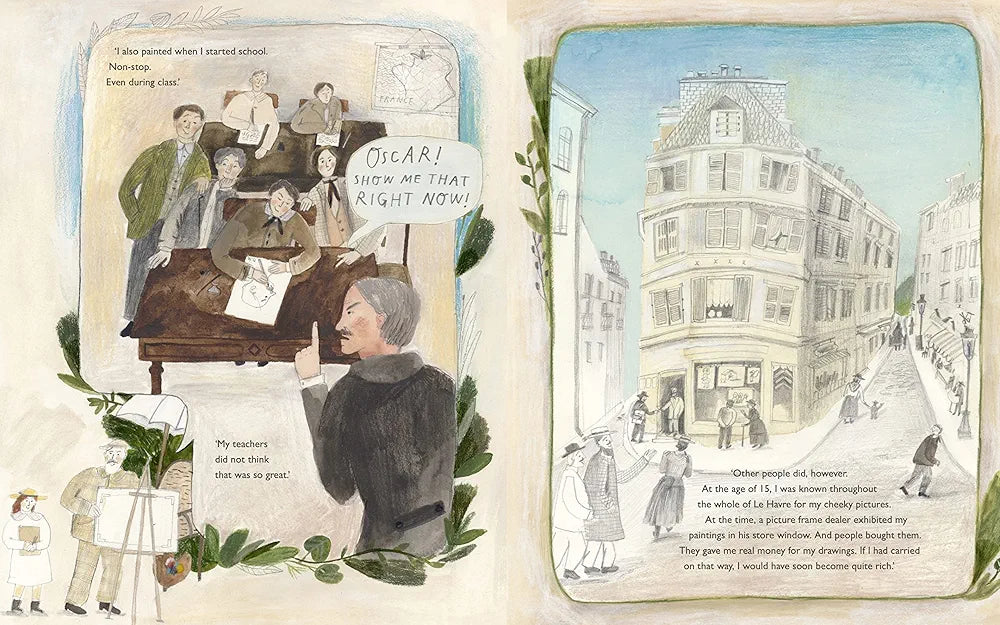 ‘I also painted when I started school.
Non-stop.
Even during class.’
FRANCE
OSCAR!
SHOW ME THAT
RIGHT NOW!
‘My teachers
did not think
that was so great.’
‘Other people did, however.
At the age of 15, I was known throughout
the whole of Le Havre for my cheeky pictures.
At the time, a picture frame dealer exhibited my
paintings in his store window. And people bought them.
They gave me real money for my drawings. If I had carried
on that way, I would have soon become quite rich.’